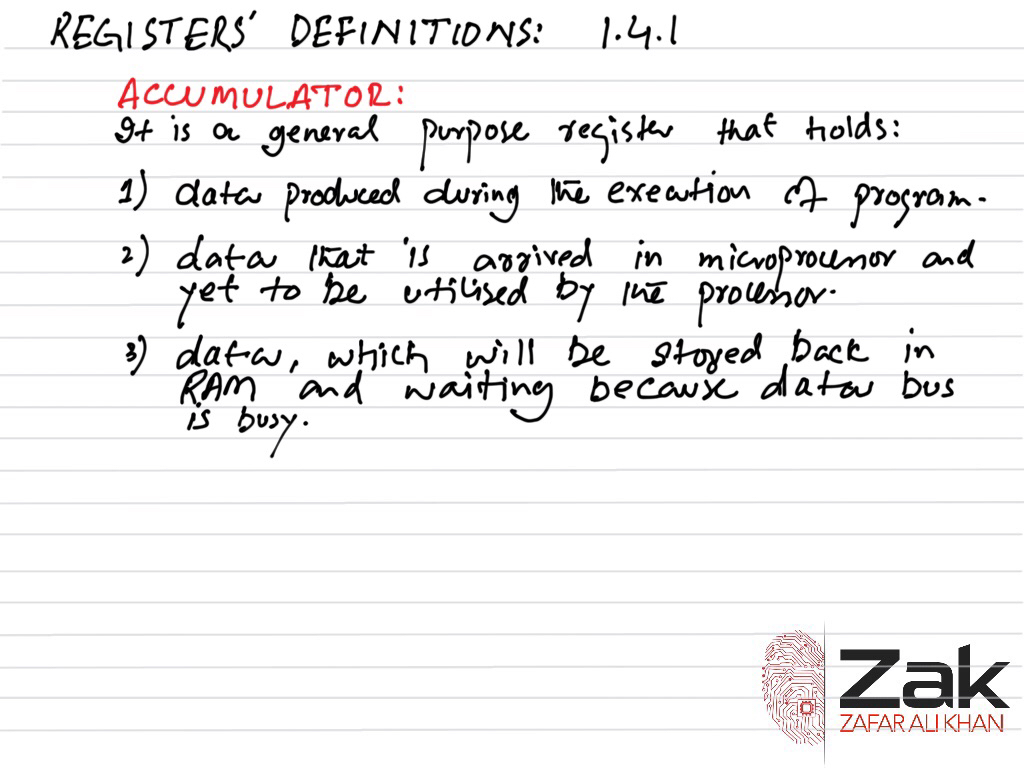 REGISTERS' DEFINITIONS: 1.4.1
ACCUMULATOR:
It is a general purpose register that holds:
1) data produced during the execution of program.
2) data that is arrived in microprocessor and
yet to be utilised by the processor.
3) data, which will be stored back in
RAM and waiting because data bus
is busy.
Zak
ZAFAR ALI KHAN